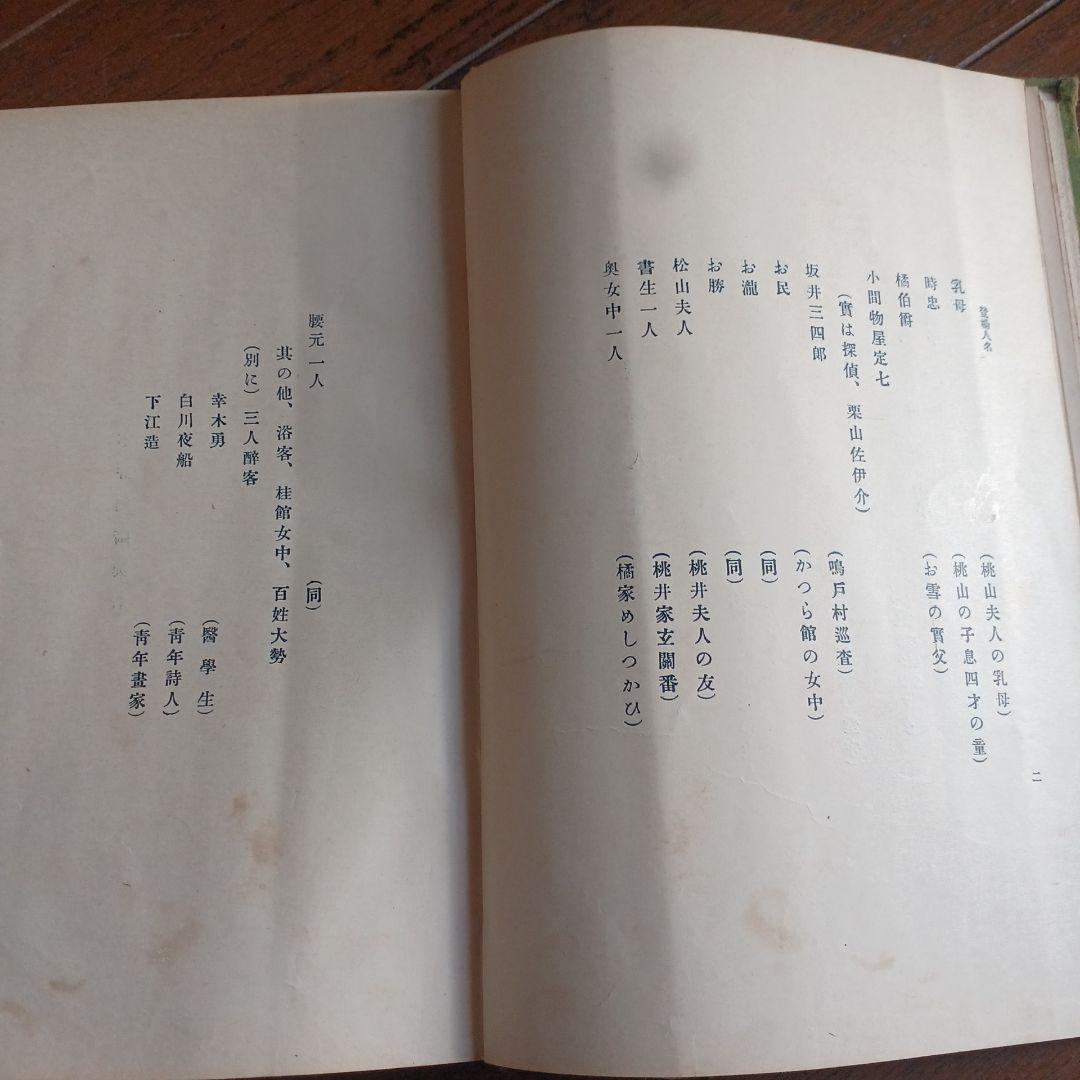 登場人名
二
乳母 (桃山夫人の乳母)
時忠 (桃山の子息四才の童)
橘伯爵 (お雪の實父)
小間物屋定七
(實は探偵、栗山佐伊介)
坂井三四郎 (鳴戸村巡査)
お民 (かつら館の女中)
お瀧 (同)
お勝 (同)
松山夫人 (桃井夫人の友)
書生一人 (桃井家玄關番)
奥女中一人 (橘家めしつかひ)
腰元一人 (同)
其の他、浴客、桂館女中、百姓大勢
(別に)三人醉客
幸木勇 (醫學生)
白川夜船 (靑年詩人)
下江造 (靑年畫家)